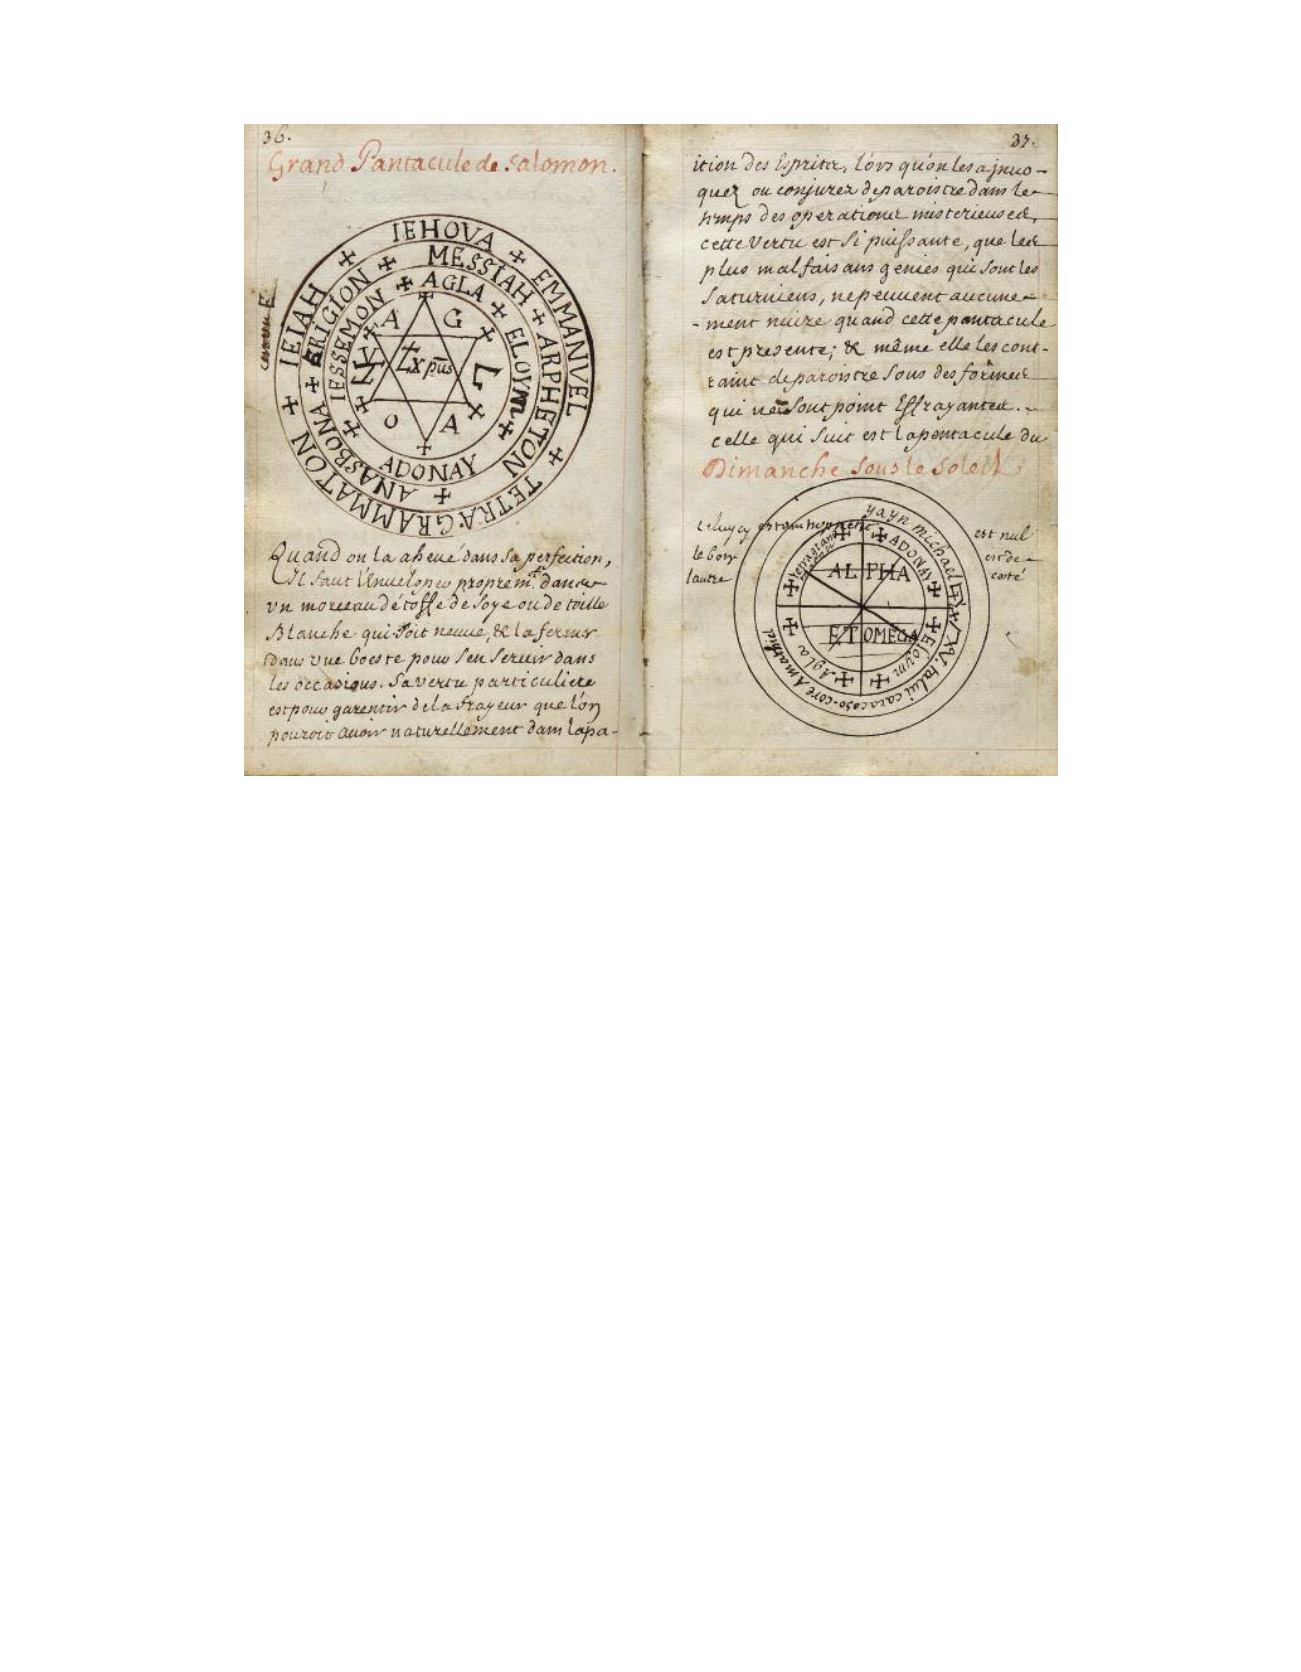 36.
Grand Pantacule de Salomon.
IEHOVA + EMMANVEL + TETRAGRAMMATON + IEIAH +
MESSIAH + ARPHETON + ANASBONA + ERIGION +
AGLA + ELOYM + ADONAY + IESSEMON +
A G L A O
Xpūs
Quand on la ahevé dans sa perfection,
Il faut l'Enuelopeo proprem.t dans
vn morceau d'étoffe de Soye ou de toille
Blanche qui soit neuue, & la fermer
dans vne boeste pour s'en Seruir dans
les occasions. Sa vertu particuliere
est pour garentir de la frayeur que l'on
pouroit auoir naturellement dans l'apa-
37.
ition des Esprits, l'ors qu'on les a jnuo-
quez ou conjurez de paroistre dans le
temps des operations misterieuses,
cette Vertu est Si puissante, que les
plus malfaisans genies qui sont les
Saturniens, ne peuuent aucune-
-ment nuire quand cette pantacule
est presente; & même elle les cont-
raint de paroistre Sous des formes
qui ne Sont point Effrayantes.
celle qui Suit est la pentacule du
Dimanche Sous le Soleil
est nul
le bon est de
l'autre costé
yayn michael
talui caracaso-core Amathiel
+ ADONAY + + Eloym + + Agla +
ALPHA
ET OMEGA